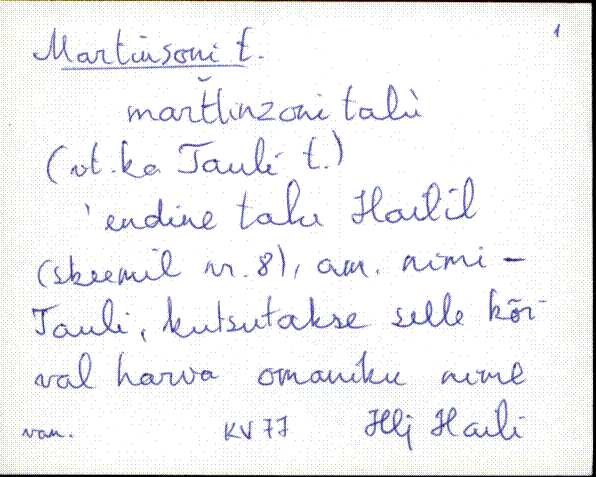 1
Martinsoni t.
martlinzoni talù
(vt. ka Tauli t.)
'endine talu Hailil
(skeemil nr. 8), am. nimi -
Tauli, kutsutakse selle kõr-
val harva omaniku nime
van. KV 77 Hlj Haili